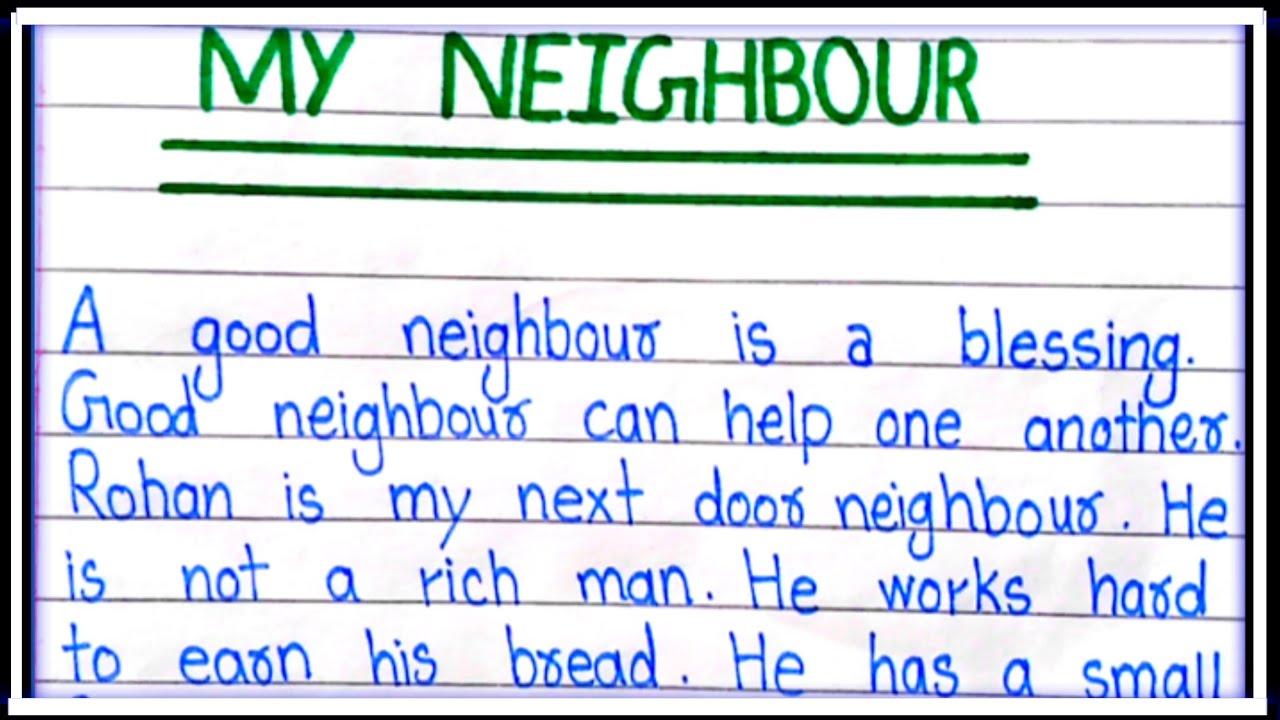 MY NEIGHBOUR
A good neighbour is a blessing.
Good neighbour can help one another.
Rohan is my next door neighbour. He
is not a rich man. He works hard
to earn his bread. He has a small